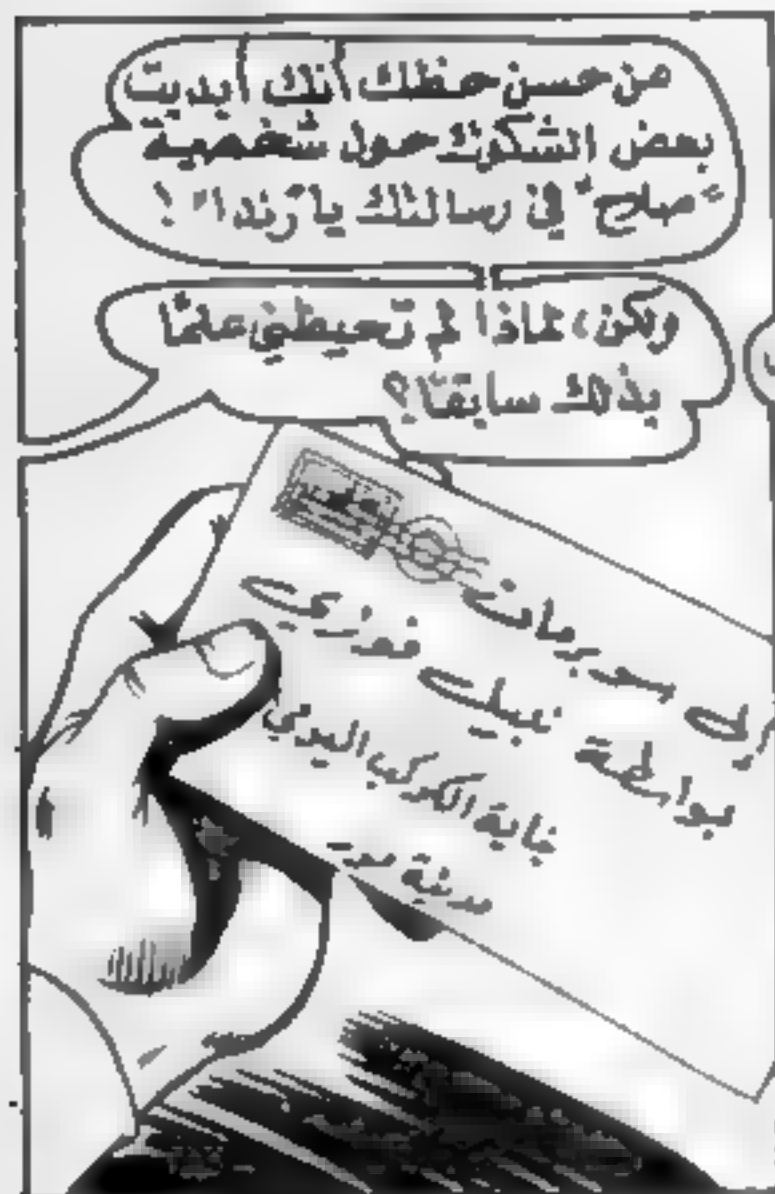 من حسن حظك أنك أبديت
بعض الشكوك حول شخصية
"صلاح" في رسالتك يا "رندا" !
ولكن، لماذا لم تحيطني علمًا
بذلك سابقًا؟
إلى سوبرمان
بواسطة نبيل فوزي
بناية الكوكب اليومي
مدينة